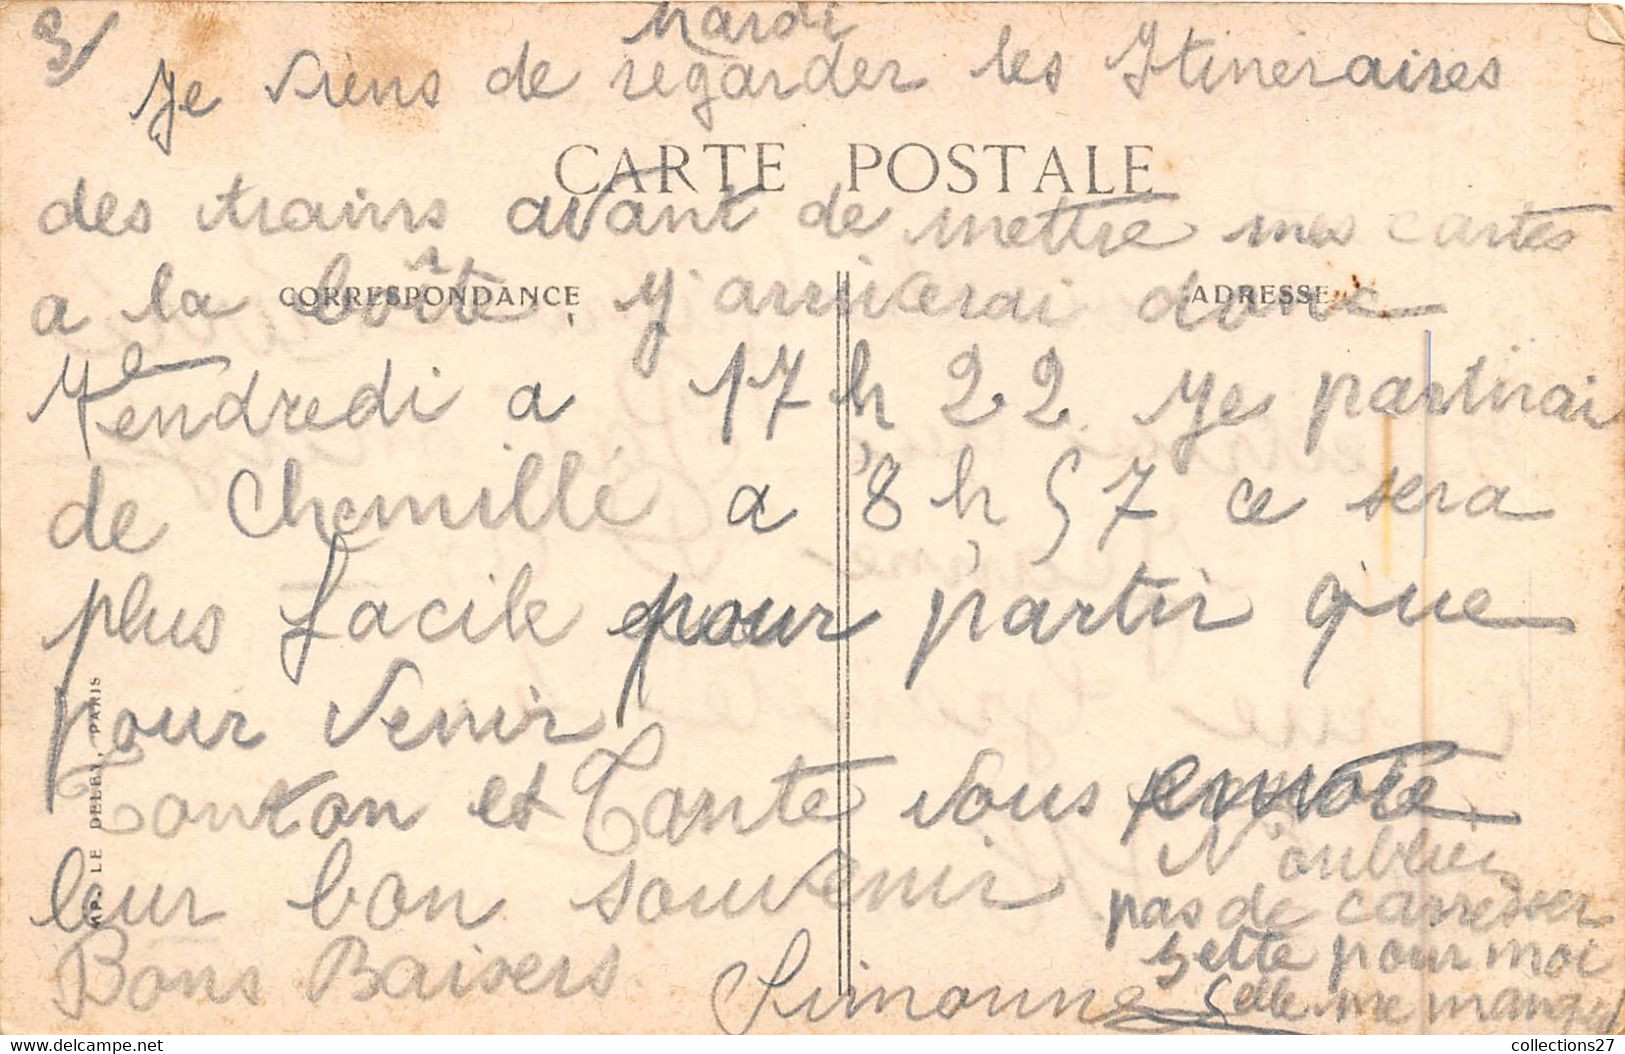 3/
Mardi
Je viens de regarder les Itinéraires
CARTE POSTALE
des trains avant de mettre mes cartes
a la boîte, J'arriverai donc
CORRESPONDANCE
ADRESSE
Vendredi a 17 h 22. Je partirai
de Chemillé a 8 h 57 ce sera
plus facile pour partir que
pour venir
Tonton et Tante vous
leur bon souvenir
Bons Baisers.
Simonne
N'oubliez
pas de carresser
pour moi
elle me manque
IMP. LE DELEY, PARIS
collections27